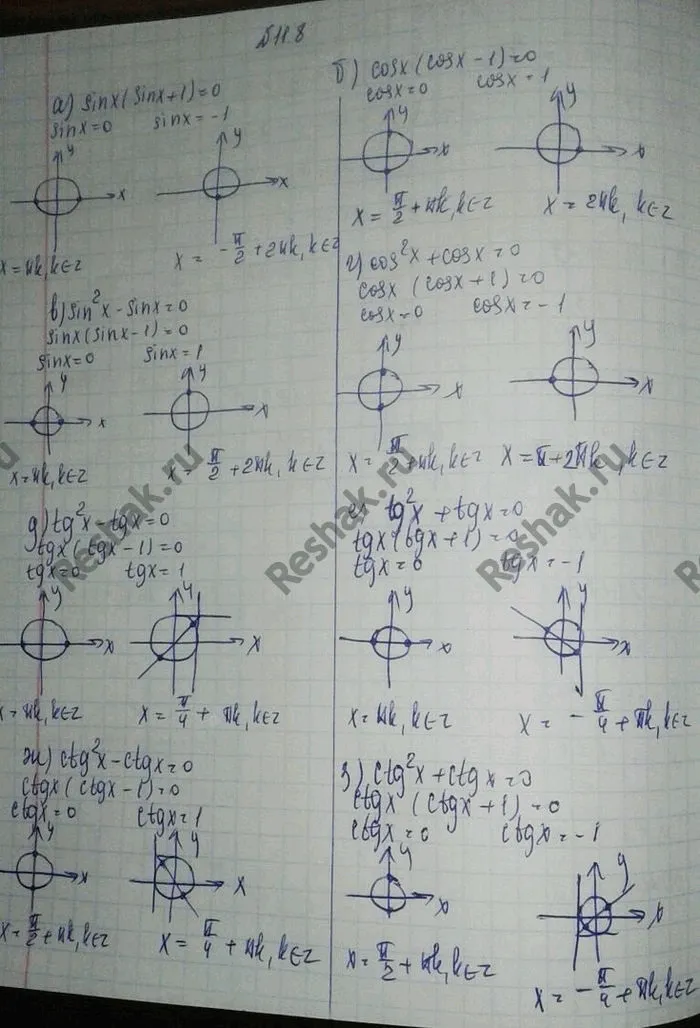 №11.8
а) sinx(sinx+1)=0
sinx=0 sinx=-1
y x y x
x=πk, k∈z x= -π/2+2πk, k∈z
б) cosx(cosx-1)=0
cosx=0 cosx=1
y x y x
x=π/2+πk, k∈z x=2πk, k∈z
в) sin²x-sinx=0
sinx(sinx-1)=0
sinx=0 sinx=1
y x y x
x=πk, k∈z x=π/2+2πk, k∈z
г) cos²x+cosx=0
cosx(cosx+1)=0
cosx=0 cosx=-1
y x y x
x=π/2+πk, k∈z x=π+2πk, k∈z
д) tg²x-tgx=0
tgx(tgx-1)=0
tgx=0 tgx=1
y x y x
x=πk, k∈z x=π/4+πk, k∈z
е) tg²x+tgx=0
tgx(tgx+1)=0
tgx=0 tgx=-1
y x y
x=πk, k∈z x=-π/4+πk, k∈z
ж) ctg²x-ctgx=0
ctgx(ctgx-1)=0
ctgx=0 ctgx=1
y x y x
x=π/2+πk, k∈z x=π/4+πk, k∈z
з) ctg²x+ctgx=0
ctgx(ctgx+1)=0
ctgx=0 ctgx=-1
y x y x
x=π/2+πk, k∈z x=-π/4+πk, k∈z
Reshak.ru
Reshak.ru
Reshak.ru